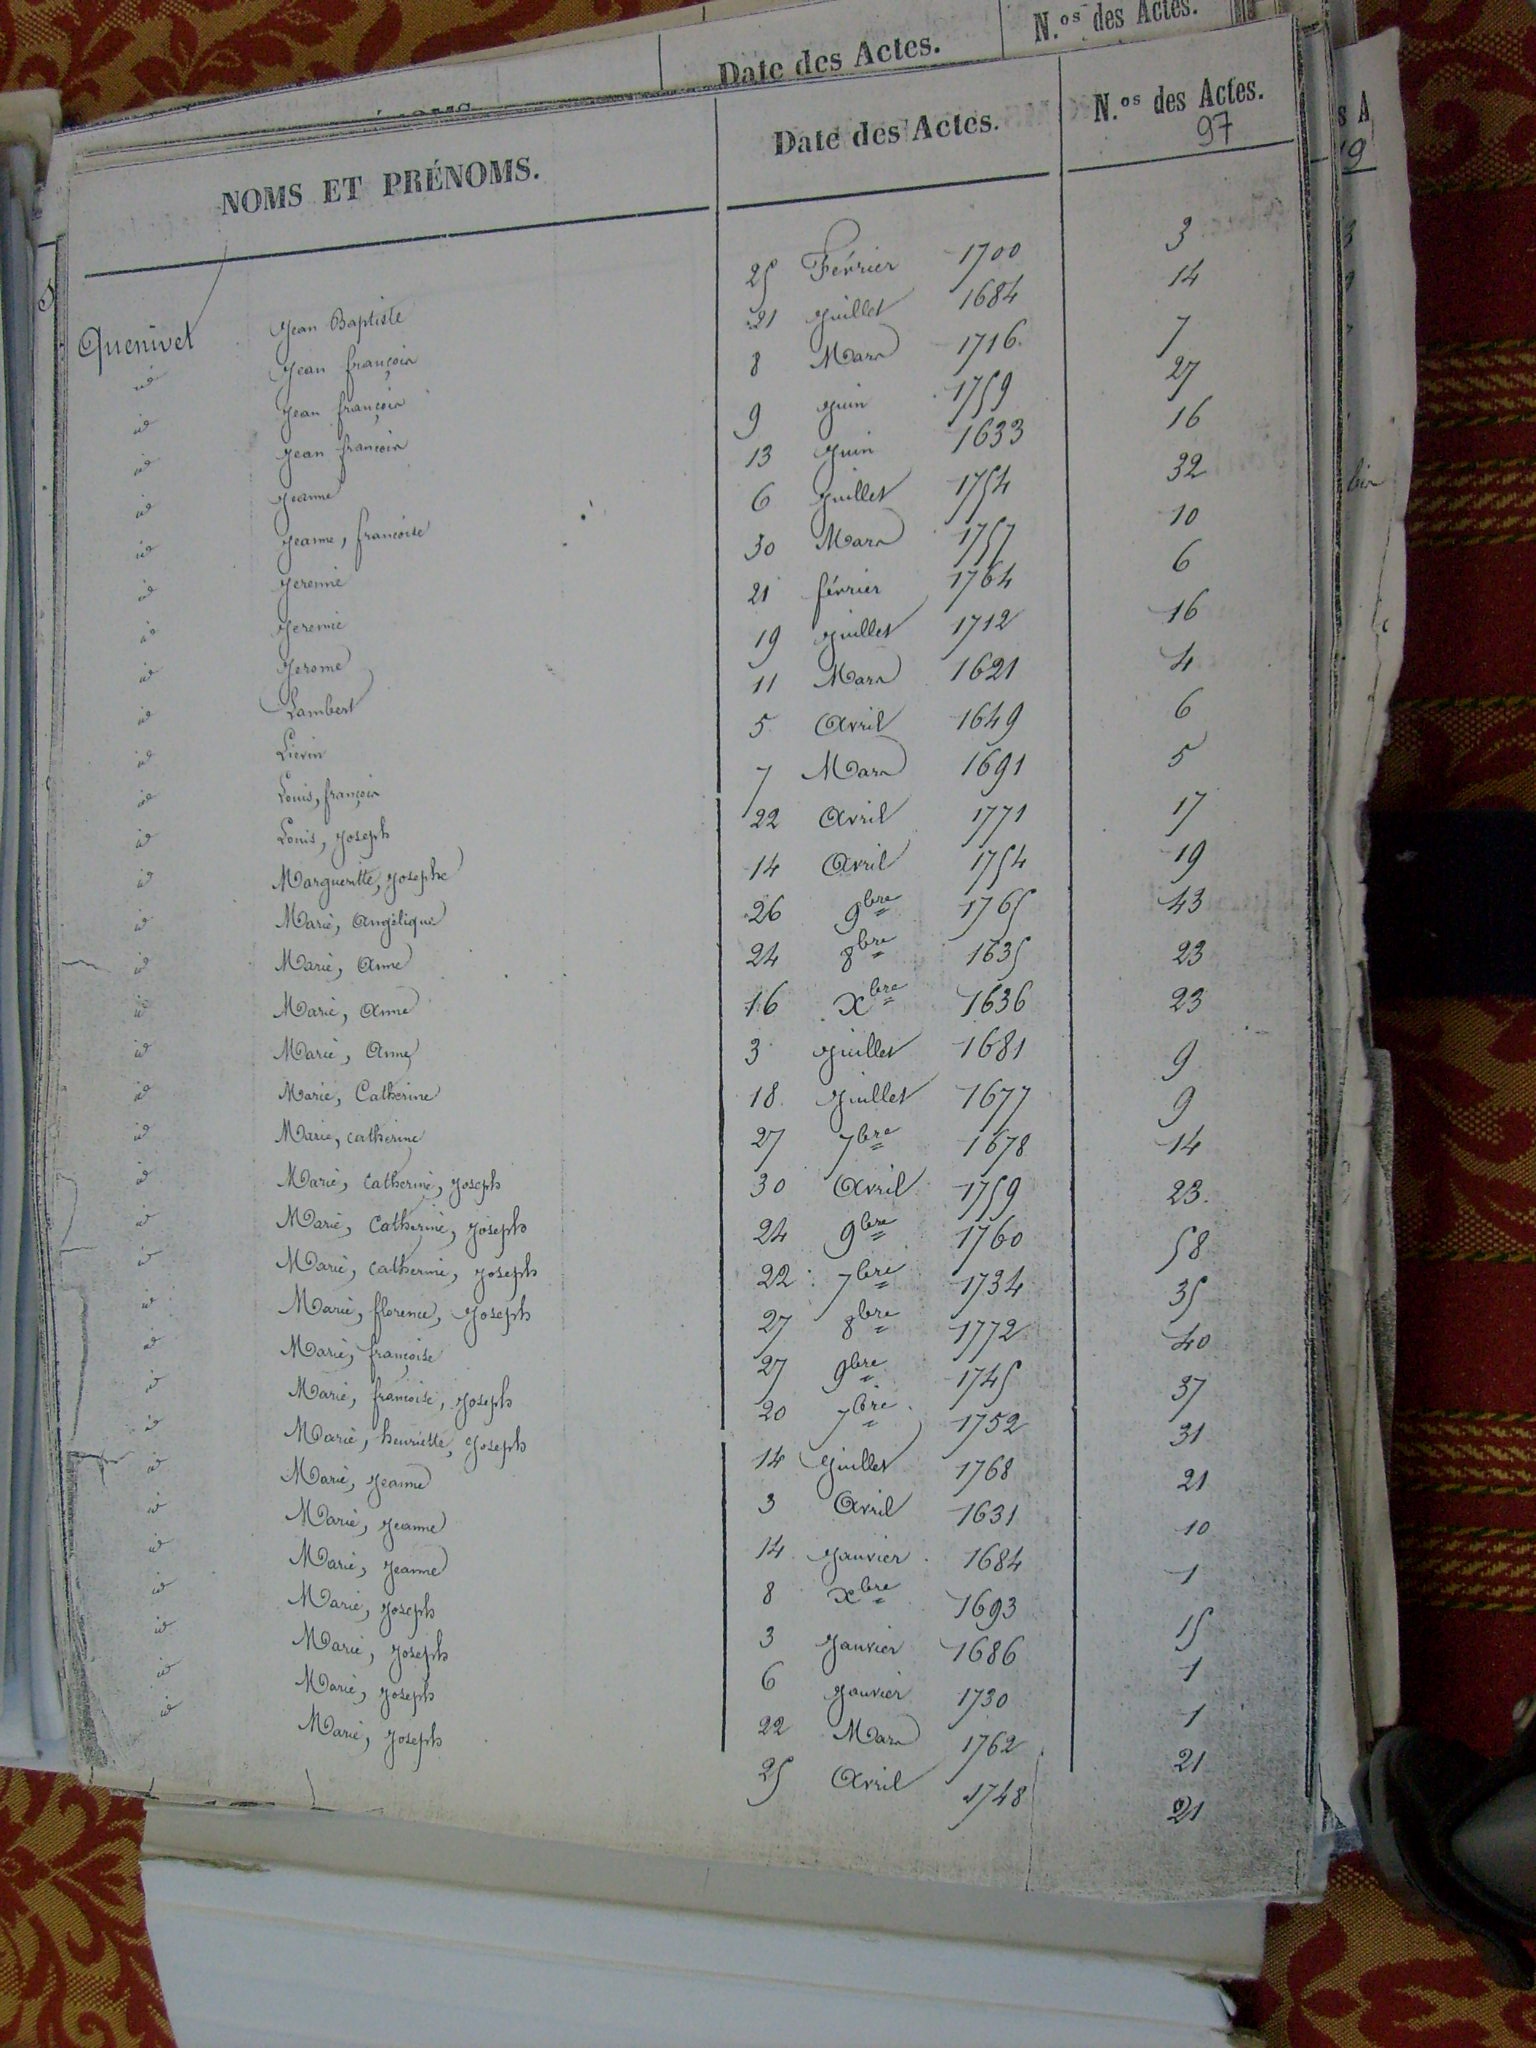 Date des Actes. N.os des Actes.
NOMS ET PRÉNOMS. Date des Actes. N.os des Actes.
97
Quenivet Jean Baptiste 25 Février 1700 3
id Jean françois 21 Juillet 1684 14
id Jean françois 8 Mars 1716. 7
id Jean françois 9 Juin 1759 27
id Jeanne 13 Juin 1633 16
id Jeanne, françoise 6 Juillet 1754 32
id Jeremie 30 Mars 1757 10
id Jeremie 21 février 1764 6
id Jerome 19 Juillet 1712 16
id Lambert 11 Mars 1621 4
id Lievin 5 Avril 1649 6
id Louis, françois 7 Mars 1691 5
id Louis, Joseph 22 Avril 1771 17
id Margueritte, Josephe 14 Avril 1754 19
id Marie, Angélique 26 9bre 1765 43
id Marie, Anne 24 8bre 1635 23
id Marie, Anne 16 Xbre 1636 23
id Marie, Anne 3 Juillet 1681 9
id Marie, Catherine 18 Juillet 1677 9
id Marie, catherine 27 7bre 1678 14
id Marie, Catherine, Joseph 30 Avril 1759 23.
id Marie, Catherine, Joseph 24 9bre 1760 58
id Marie, Catherine, Joseph 22 7bre 1734 35
id Marie, florence, Joseph 27 8bre 1772 40
id Marie, françoise 27 9bre 1745 37
id Marie, françoise, Joseph 20 7bre 1752 31
id Marie, henriette, Joseph 14 Juillet 1768 21
id Marie, Jeanne 3 Avril 1631 10
id Marie, Jeanne 14 Janvier 1684 1
id Marie, Jeanne 8 xbre 1693 15
id Marie, Joseph 3 Janvier 1686 1
id Marie, Joseph 6 Janvier 1730 1
id Marie, Joseph 22 Mars 1762 21
id Marie, Joseph 25 Avril 1748 21